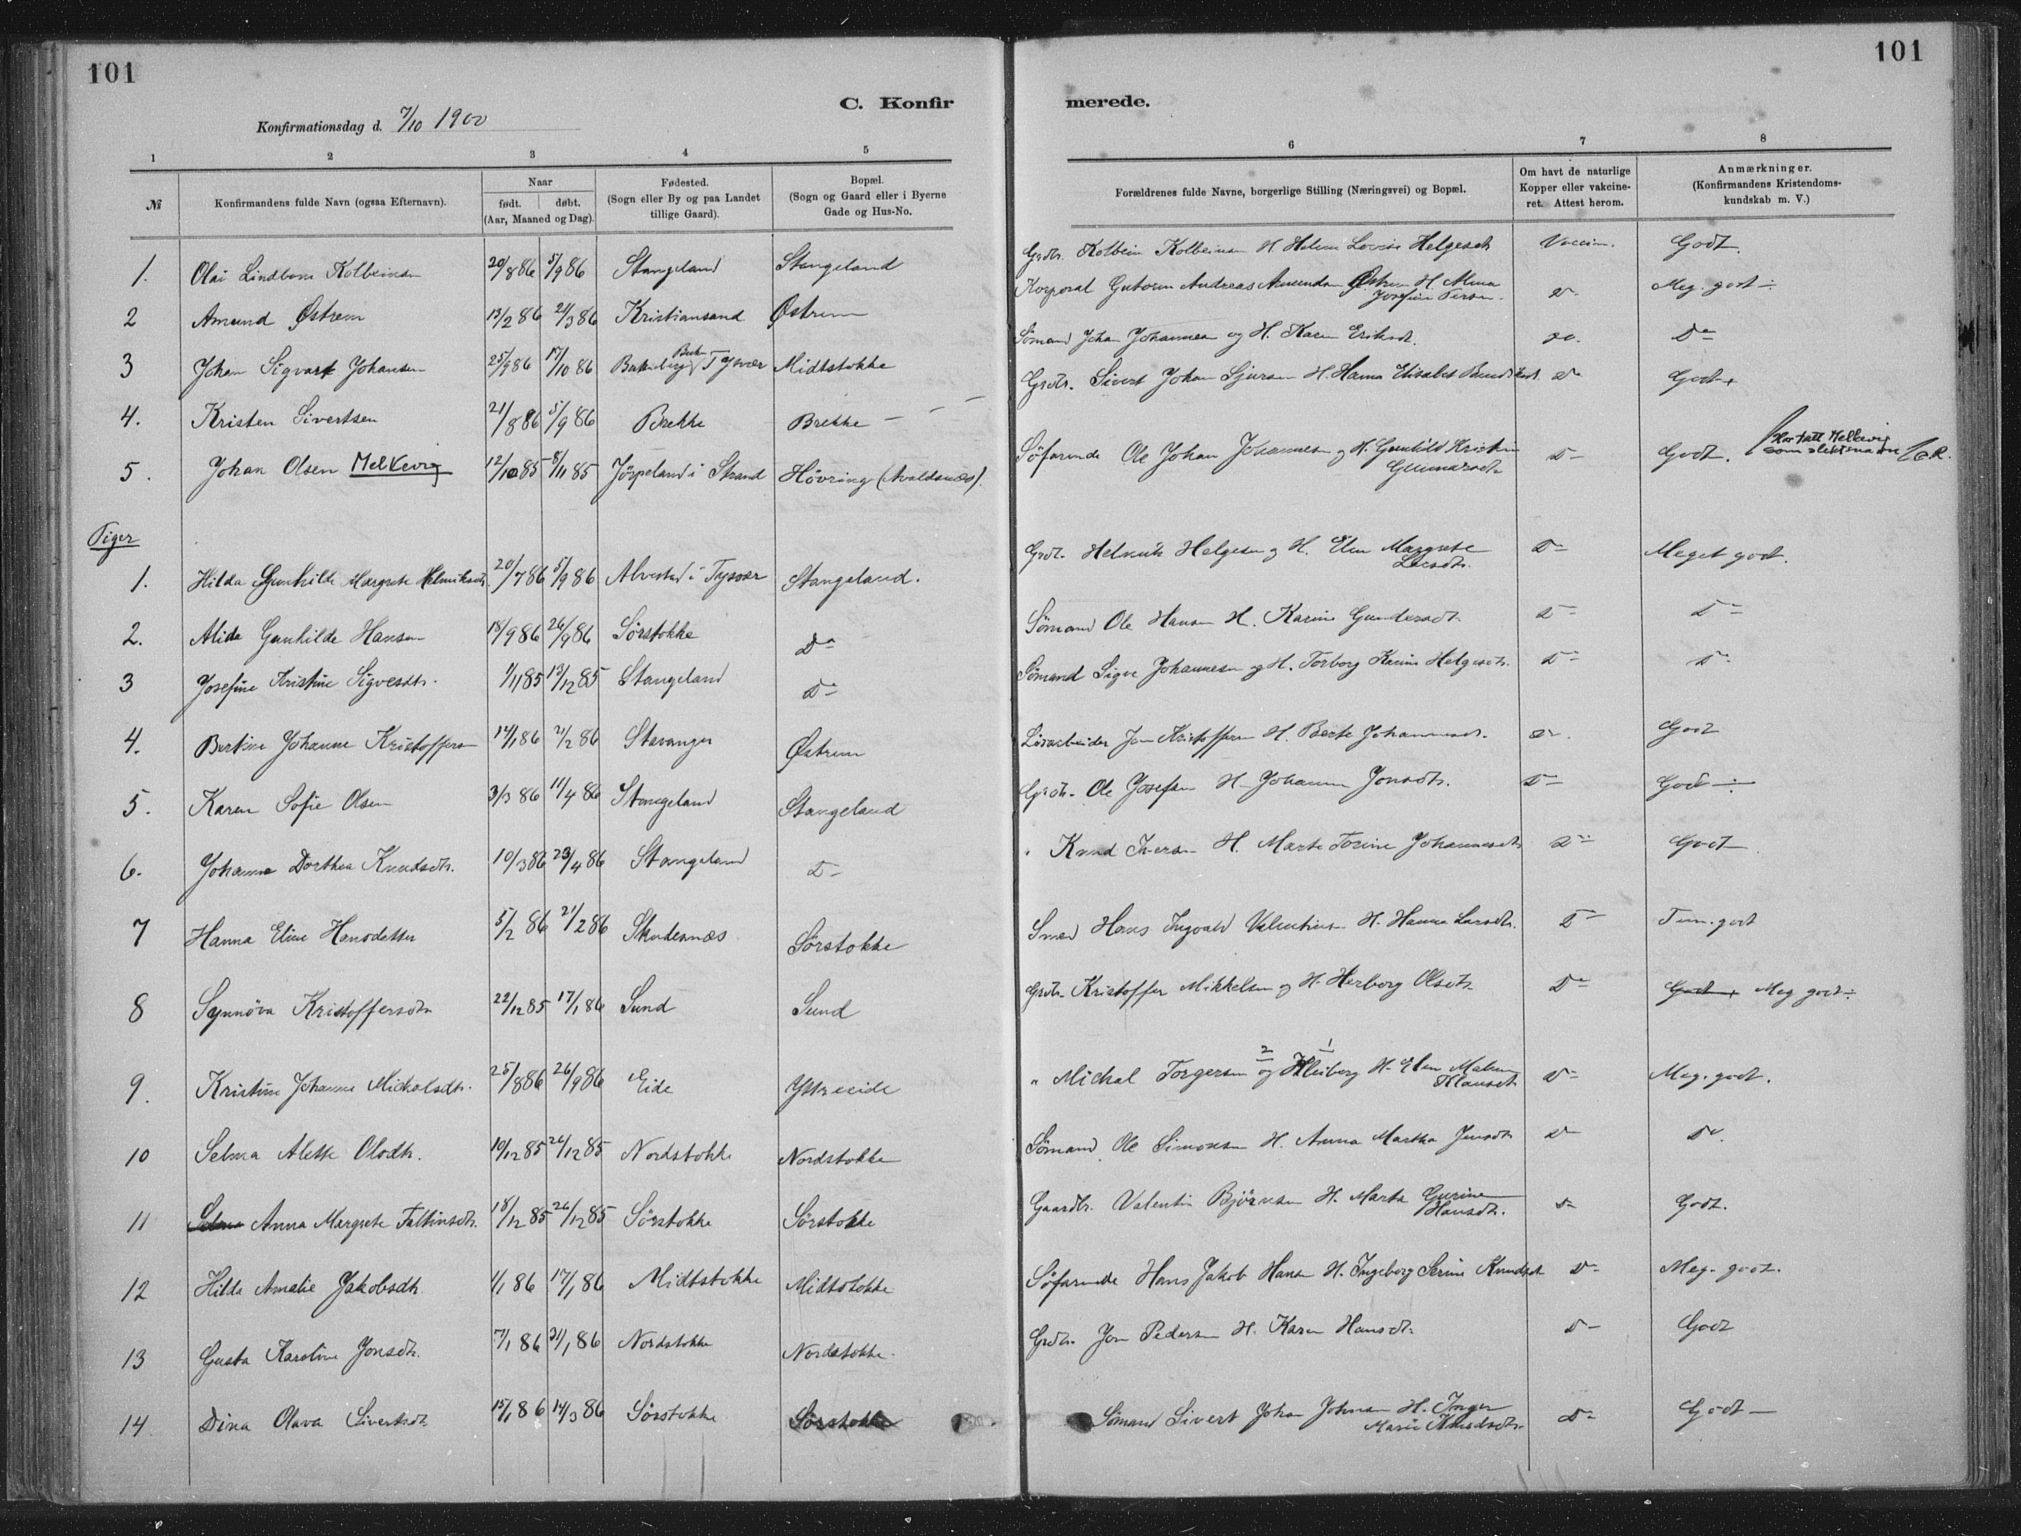 101
101
C. Konfir
merede.
Konfirmationsdag d. 7/10 1900
1 2 3 4 5 6 7 8
№
Konfirmandens fulde Navn (ogsaa Efternavn).
Naar
født. døbt.
(Aar, Maaned og Dag).
Fødested.
(Sogn eller By og paa Landet
tillige Gaard).
Bopæl.
(Sogn og Gaard eller i Byerne
Gade og Hus-No.
Forældrenes fulde Navne, borgerlige Stilling (Næringsvei) og Bopæl.
Om havt de naturlige
Kopper eller vakcine-
ret. Attest herom.
Anmærkninger.
(Konfirmandens Kristendoms-
kundskab m. V.)
1. Olai Kolbeinsen 20/8 86 5/9 86 Stangeland Stangeland Grdbr. Kolbein Kolbeinsen H. Helene Lovise Helgesdt. Vaccin. Godt.
2 Amund Østrem 13/2 86 21/3 86 Kristiansand Østrem Korporal Gutorm Andreas Amundsen Østrem H. Alma
Josefine D- Meg. godt ÷
3 Johan Sigvart Johansen 25/9 86 17/10 86 Tysvær Midtstokke Sømand Johan Johannesen og H. Karen Eriksdt. D-
4. Kristen Sivertsen 21/8 86 5/9 86 Brekke Brekke Grdbr. Sivert Johan Sjursen H. Hanna Elisabet D- Godt +
5. Johan Olsen Melkevig 12/10 85 8/11 85 Jørpeland i Strand Høvring (Avaldsnæs). Søfarende Ole Johan Johannesen og H. Gunhild Kristine
Gunnarsdt. D- Godt. Har tatt Melkevig
som slektsnavn
Piger
1. Hilda Gunhilde Margrete Helmiksdt. 20/7 86 5/9 86 Alvestad i Tysvær Stangeland. Grdbr. Helmik Helgesen og H. Elen Margrete
Larsdt. D- Meget godt.
2. Alida Gunhilde Hansen 18/9 86 26/9 86 Sørstokke D- Sømand Ole Hansen H. Karine Gundersdt. D- D-
3 Josefine Kristine Sigvesdt. 1/11 85 13/12 85 Stangeland D- Sømand Sigve Johannesen og H. Torborg Karine Helgesdt. D- D-
4. Bertine Johanne Kristoffersen 14/1 86 2/2 86 Stavanger Østrem Løsarbeider Jon Kristoffersen H. Berte Johannesdt. D- Godt
5. Karen Sofie Olsen 3/3 86 11/4 86 Stangeland Stangeland Grdbr. Ole Josefsen H. Johanne Jonsdt. D- Godt ÷
6. Johanne Dorthea Knudsdt. 10/3 86 23/4 86 Stangeland D- " Knud Iversen H. Marta Torine Johannesdt. D- Godt
7 Hanna Eline Hansdatter 5/2 86 21/2 86 Skudesnæs Sørstokke Smed Hans Ingvald Valentinsen H. Hanna Larsdt. D- Tem. godt
8 Synnøva Kristoffersdtr 22/12 85 17/1 86 Sund Sund Grdbr. Kristoffer Mikkelsen og H. Herborg Olsdt. D- Godt + Meg godt ÷
9. Kristine Johanne Mickalsdt. 25/8 86 26/9 86 Eide Ytreeide " Mickal Torgersen og H. Elen Malene
Klausdt. D- Meg. godt.
10 Selma Alette Olsdt. 10/12 85 26/12 85 Nordstokke Nordstokke Sømand Ole Simonsen H. Anna Martha Jensdt. D- D-
11 Selma Anna Margrete Faltinsdt. 18/12 85 26/12 85 Sørstokke Sørstokke Gaardbr. Valentin Bjørnsen H. Marta Gurine
Hansdt. D- Godt.
12 Hilda Amalie Jakobsdt. 1/1 86 17/1 86 Midtstokke Midtstokke Søfarende Hans Jakob Hansen H. Ingeborg Serine Knudsdt D- Meg. godt.
13 Gusta Karoline Jonsdt. 7/1 86 31/1 86 Nordstokke Nordstokke. Grdbr. Jon Pedersen H. Karen Hansdt. D- Godt
14 Dina Olava Sivertsdt. 15/1 86 14/3 86 Sørstokke Sørstokke Sømand Sivert Johan Johnsen H. Inger
Marie Knudsdt. D- Godt